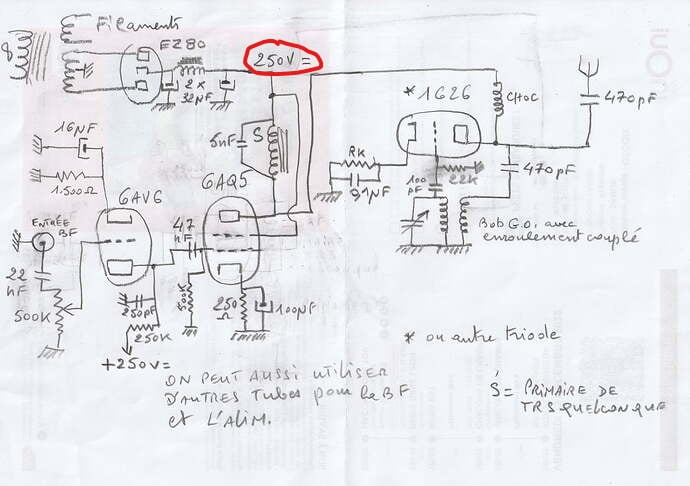 Filaments
EZ80
250V=
2x
32µF
* 1G26
CHOC
470pF
16µF
5nF
S
RK
0,1µF
100
pF
22K
470pF
1.500Ω
6AV6
6AQ5
ENTRÉE
BF
47
nF
Bob G.O. avec
enroulement couplé
22
nF
500K
250pF
250K
500K
250
Ω
100µF
+250V=
* ou autre triode
ON PEUT AUSSI UTILISER
D'AUTRES TUBES pour la BF
et L'ALIM.
S = PRIMAIRE DE
TRS QUELCONQUE